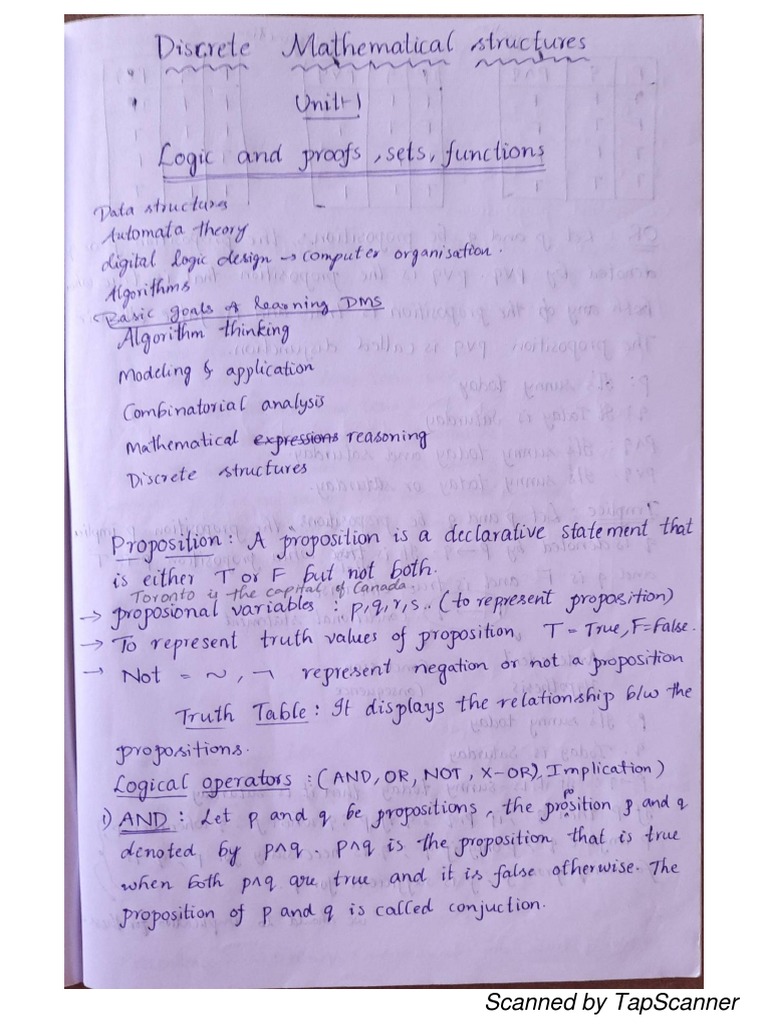 Discrete Mathematical structures
Unit-1
Logic and proofs, sets, functions
Data structures
Automata theory
digital logic design → computer organisation.
Algorithms
Basic goals of learning DMS
Algorithm thinking
Modeling & application
Combinatorial analysis
Mathematical expressions reasoning
Discrete structures
Proposition: A proposition is a declarative statement that
is either T or F but not both.
Toronto is the capital of Canada.
→ proposional variables : p,q,r,s.. (to represent proposition)
→ To represent truth values of proposition, T = True, F=False.
→ Not = ~, ¬ represent negation or not a proposition
Truth Table: It displays the relationship b/w the
propositions.
Logical operators : (AND, OR, NOT, X-OR, Implication)
i) AND : Let p and q be propositions, the proposition p and q
denoted by p∧q. p∧q is the proposition that is true
when both p∧q are true and it is false otherwise. The
proposition of p and q is called conjuction.
Scanned by TapScanner